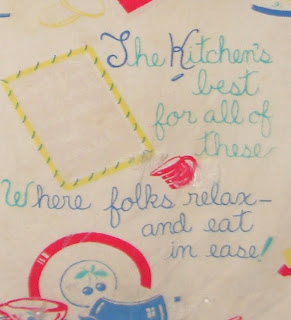 The Kitchen's
best
for all of
these
Where folks relax—
and eat
in ease!